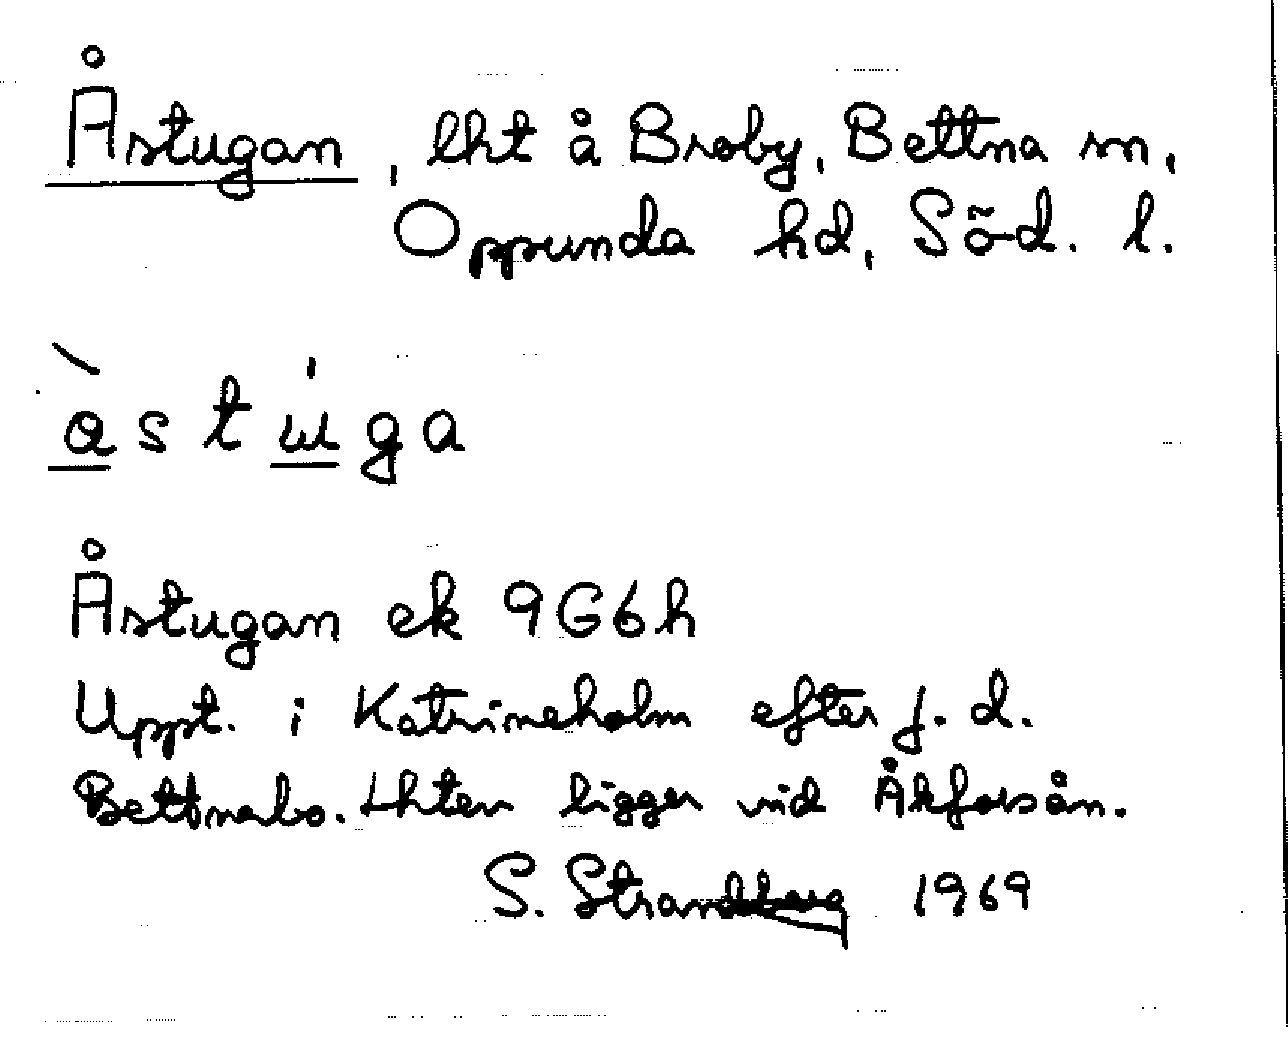 Åstugan, lht å Broby, Bettna sn,
Oppunda hd, Söd. l.
àstúga
Åstugan ek 9G6h
Uppt. i Katrineholm efter f. d.
Bettnabo. Lhten ligger vid Åkforsån.
S. Strandberg 1969